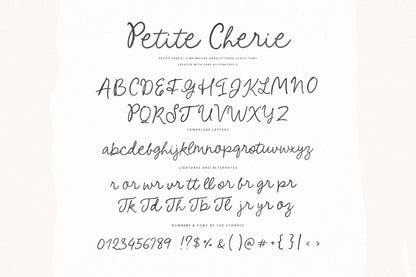 Petite Cherie
PETITE CHERIE, A WHIMSICAL HANDLETTERED SCRIPT FONT
CREATED WITH LOVE BY
ABCDEFGHIJKLMNO
PQRSTUVWXYZ
LOWERCASE LETTERS
abcdebghijklmnopqrstuvwxyz
LIGATURES AND ALTERNATES
r or wr vr tt ll or br gr pr
Tk Td Th Tb Tl jr yr oz
NUMBERS & SOME OF THE SYMBOLS
0123456789 !?$% & ( ) @ # + { } | < >